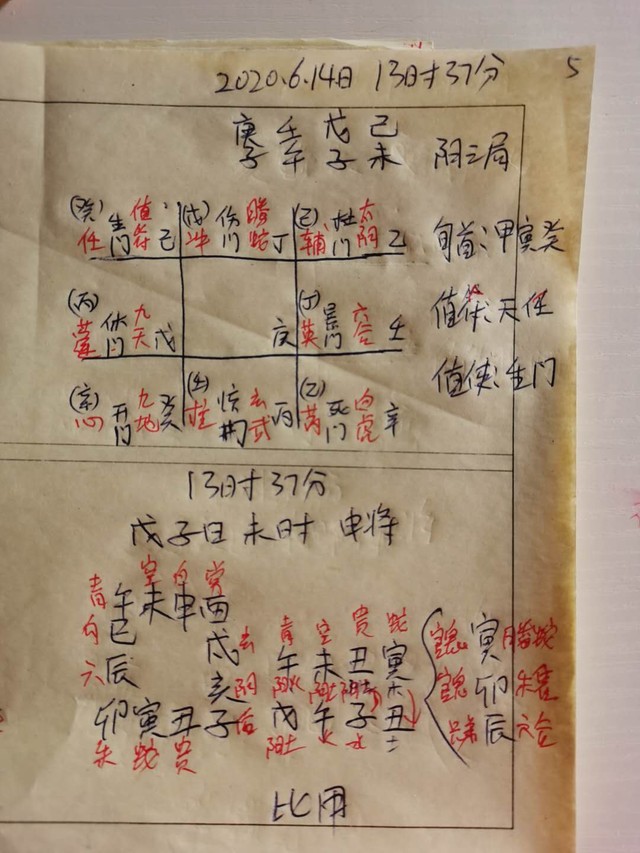 2020.6.14日 13时37分 5
庚 壬 戊 己
子 午 子 未 阳三局
(癸) 生 值 (戊) 伤 腾 (己) 杜 太
任 门 符 己 冲 门 蛇 丁 辅 门 阳 乙 旬首:甲寅癸
(丙) 休 九 (丁) 景 六
蓬 门 天 戊 庚 英 门 合 壬 值符:天任
值使:生门
九 惊 玄 (乙) 死 白
心 开门 地 癸 柱 门 武 丙 芮 门 虎 辛
13时37分
戊子日 未时 申将
空 白 常
青 午 未 申 酉
勾 巳 戌 玄 青 空 贵 蛇 寅 腾蛇
六 辰 亥 阴 午 未 丑 寅 卯 朱雀
阳火 阳土 木
卯 寅 丑 子 后 戊 午 子 丑 兄弟 辰 六合
朱 蛇 贵 阳土 火 水 土
比用